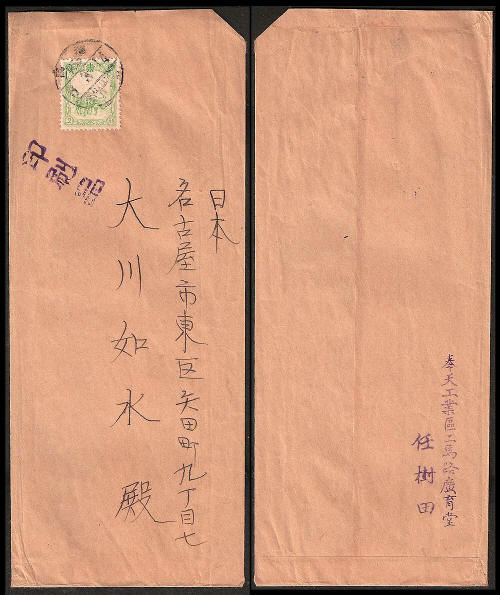 印刷物
日本
名古屋市東区矢田町九丁目七
大川如水殿
奉天工業區二馬路廣育堂
任樹田